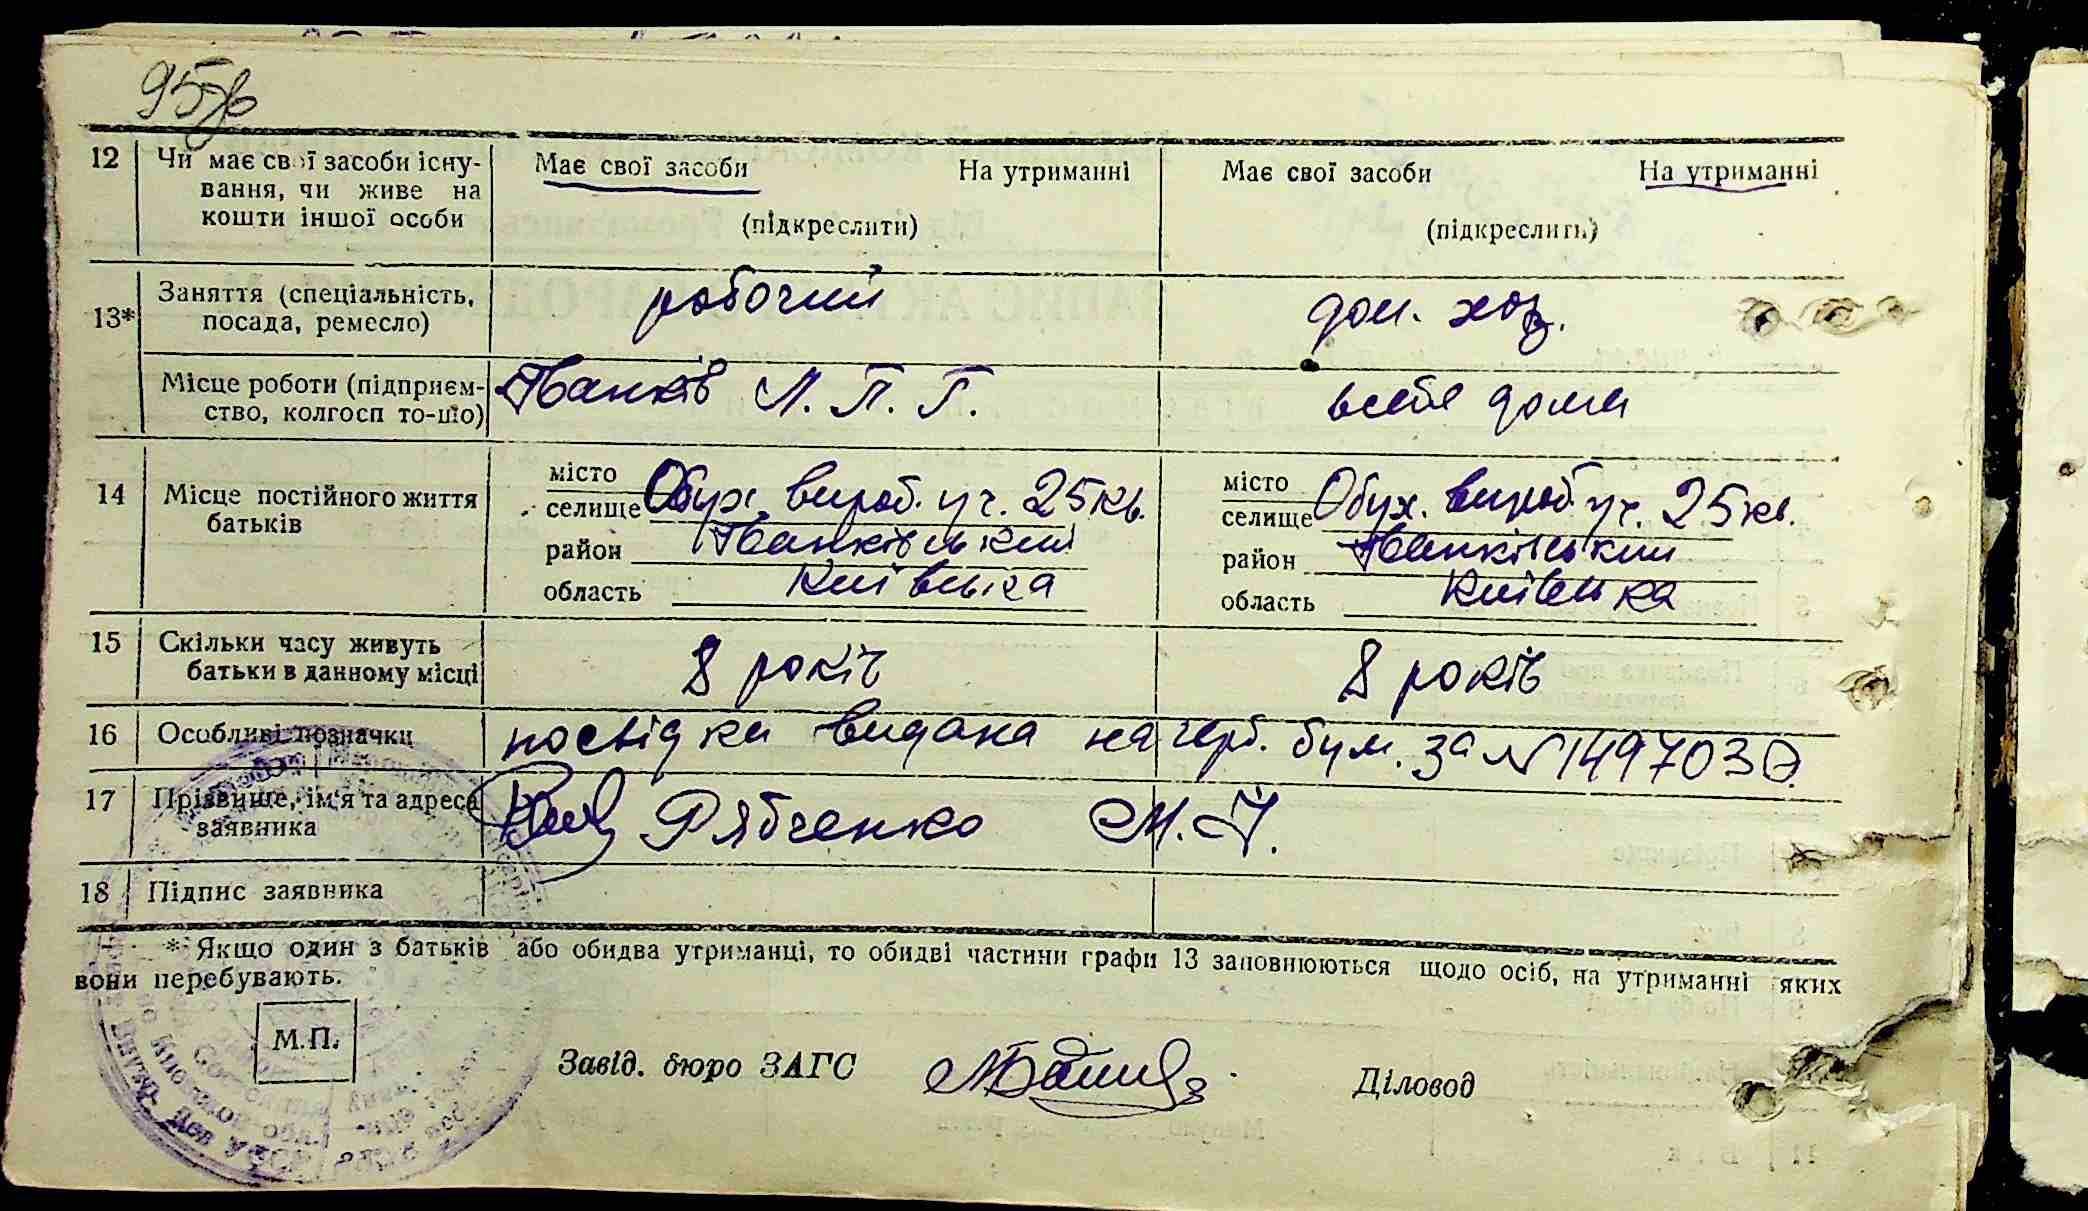 95зв
12 Чи має свої засоби існу- Має свої засоби На утриманні Має свої засоби На утриманні
вання, чи живе на
кошти іншої особи (підкреслити) (підкреслити)
13* Заняття (спеціальність, робочий дом. хоз.
посада, ремесло)
Місце роботи (підприєм- Іванків Л. П. Г. всебе дома
ство, колгосп то-що)
14 Місце постійного життя місто місто
батьків селище Обух. вироб. уч. 25 кв. селище Обух. вироб. уч. 25 кв.
район Іванківський район Іванківський
область Київська область Київська
15 Скільки часу живуть 8 років 8 років
батьки в данному місці
16 Особливі позначки посвідка видана на герб. бум. за №
17 Прізвище, ім'я та адреса Рябченко М. І.
заявника
18 Підпис заявника
* Якщо один з батьків або обидва утриманці, то обидві частини графи 13 заповнюються щодо осіб, на утриманні яких
вони перебувають.
М.П.
Завід. бюро ЗАГС Діловод